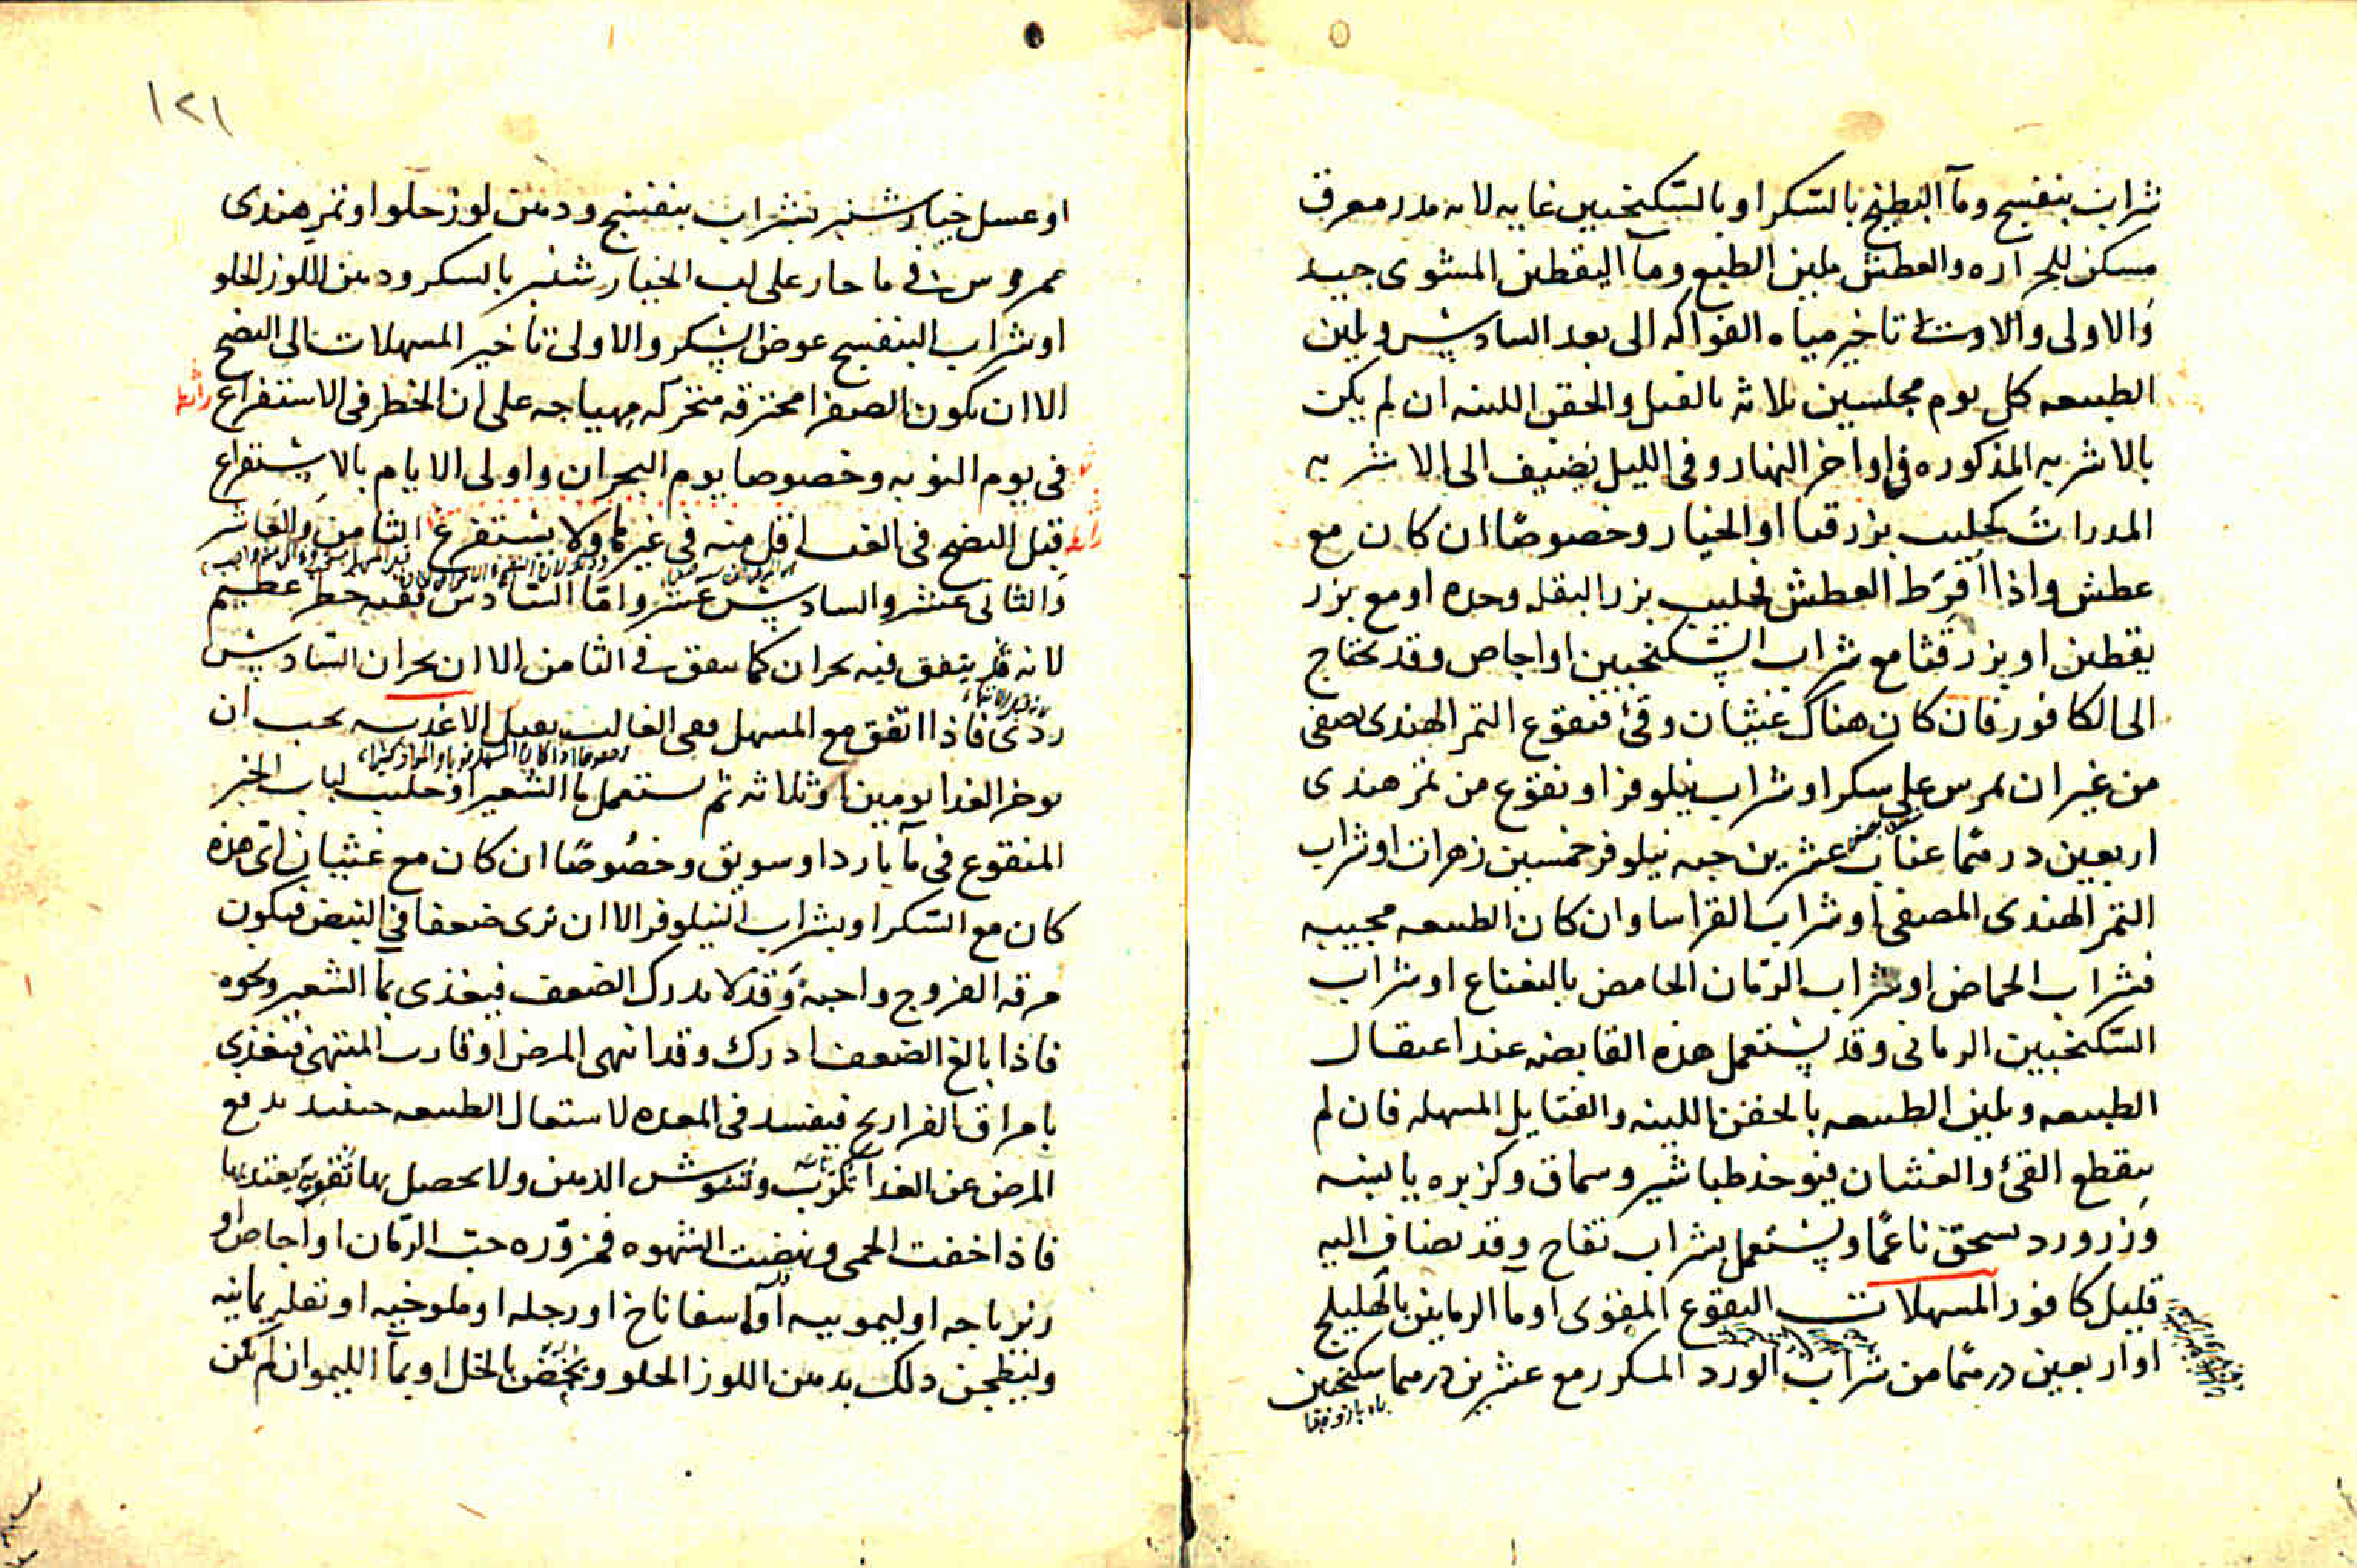 شراب بنفسج ومآ البطيخ بالسّكر او بالسّكنجبين غايه لانه مدر معرق
مسكن للحراره والعطش ملين الطبع ومآ اليقطين المشوى جيد
والاولى والاوت تاخير مياه الفواكه الى بعد السادس ويلين
الطبيعه كل يوم مجلسين ثلاثه بالفتل والحقن اللينه ان لم يكن
بالاشربه المذكوره فى اواخر النهار وفى الليل يضيف الى الاشربه
المدرات كحليب بزر قثا او الخيار وخصوصًا ان كان مع
عطش واذا افرَط العطش فحليب بزر البقله وحده او مع بزر
يقطين او بزر قثا مع شراب السّكنجبين او اجاص وقد يحتاج
الى الكافور فان كان هناك غثيان وقئ فنقوع التمر الهندى يصفى
من غير ان يمرس على سكر او شراب نيلوفر او نقوع من تمر هندى
اربعين درهمًا عناب عشرين حبه نيلوفر خمسين زهرات او شراب
التمر الهندى المصفى او شراب القراسا وان كان الطبيعه مجيبه
فشراب الحماض او شراب الرّمان الحامض بالنعناع او شراب
السّكنجبين الرمانى وقد يستعمل هذه القابضه عند اعتقال
الطبيعه ويلين الطبيعه بالحقن اللينه والفتايل المسهله فان لم
ينقطع القئ والغثيان فيوخذ طباشير وسماق وكزبره يابسه
وَزر ورد يسحق ناعمًا ويستعمل بشراب تفاح وقد يضاف اليه
قليل كافور المسهلات النقوع المقوى او ما الرمانين بالهليلج
او اربعين درهمًا من شراب الورد المكرر مع عشرين درهما سكنجبين
١٢١
او عسل خيار شنبر بشراب بنفسج ودهن لوز حلو او تمر هندى
يمرس فى ما حار على لب الخيار شنبر بالسكر ودهن اللوز الحلو
او شراب البنفسج عوض السّكر والاولى تاخير المسهلات الى النضج
الا ان يكون الصفرا محترقه متحركه مهياجه على ان الخطر فى الاستفراغ
فى يوم النوبه وخصوصا يوم البحران واولى الايام بالاستفراغ
قبل النضج فى الغب اقل منه فى غيرها ولا يستفرغ الثامن والعاشر
وَالثانى عشر والسادس عشر وامّا السّادس ففيه خطر عظيم
لانه قد يتفق فيه بحران كما يتفق فى الثامن الا ان بحران السّادس
ردى فاذا اتفق مع المسهل فهى الغالب يقتل الاغديه يجب ان
يوخر الغدا يومين او ثلاثه ثم يستعمل ما الشعير او حليب لباب الخبز
المنقوع فى مآ بارد او سويق وخصُوصًا ان كان مع غثيان اىّ هذه
كان مع السّكر او بشراب النيلوفر الا ان ترى ضعفا فى النبض فيكون
مرقه الفروج واجبة وَقد لا يدرك الضعف فيغذى بمآ الشعير ونحوه
فاذا بالغ الضعف ادرك وقد انتهى المرض او قارب المنتهى فيغذى
بامراق الفراريج فيفسد فى المعده لاستعمال الطبيعه حينئذ بدفع
المرض عن الغدا تكرب وتشوش الذهن ولا يحصل بها تقوية يعتد بها
فاذا خفت الحمى ونهضت الشهوه فمزوّره حبّ الرّمان او اجاص او
زيرباجه او ليمونيه او اسفاناخ او رجله او ملوخيه او بقله يمانيه
وليطجن ذلك بدهن اللوز الحلو ويحمّض بالخل او بمآ الليمو ان لم يكن